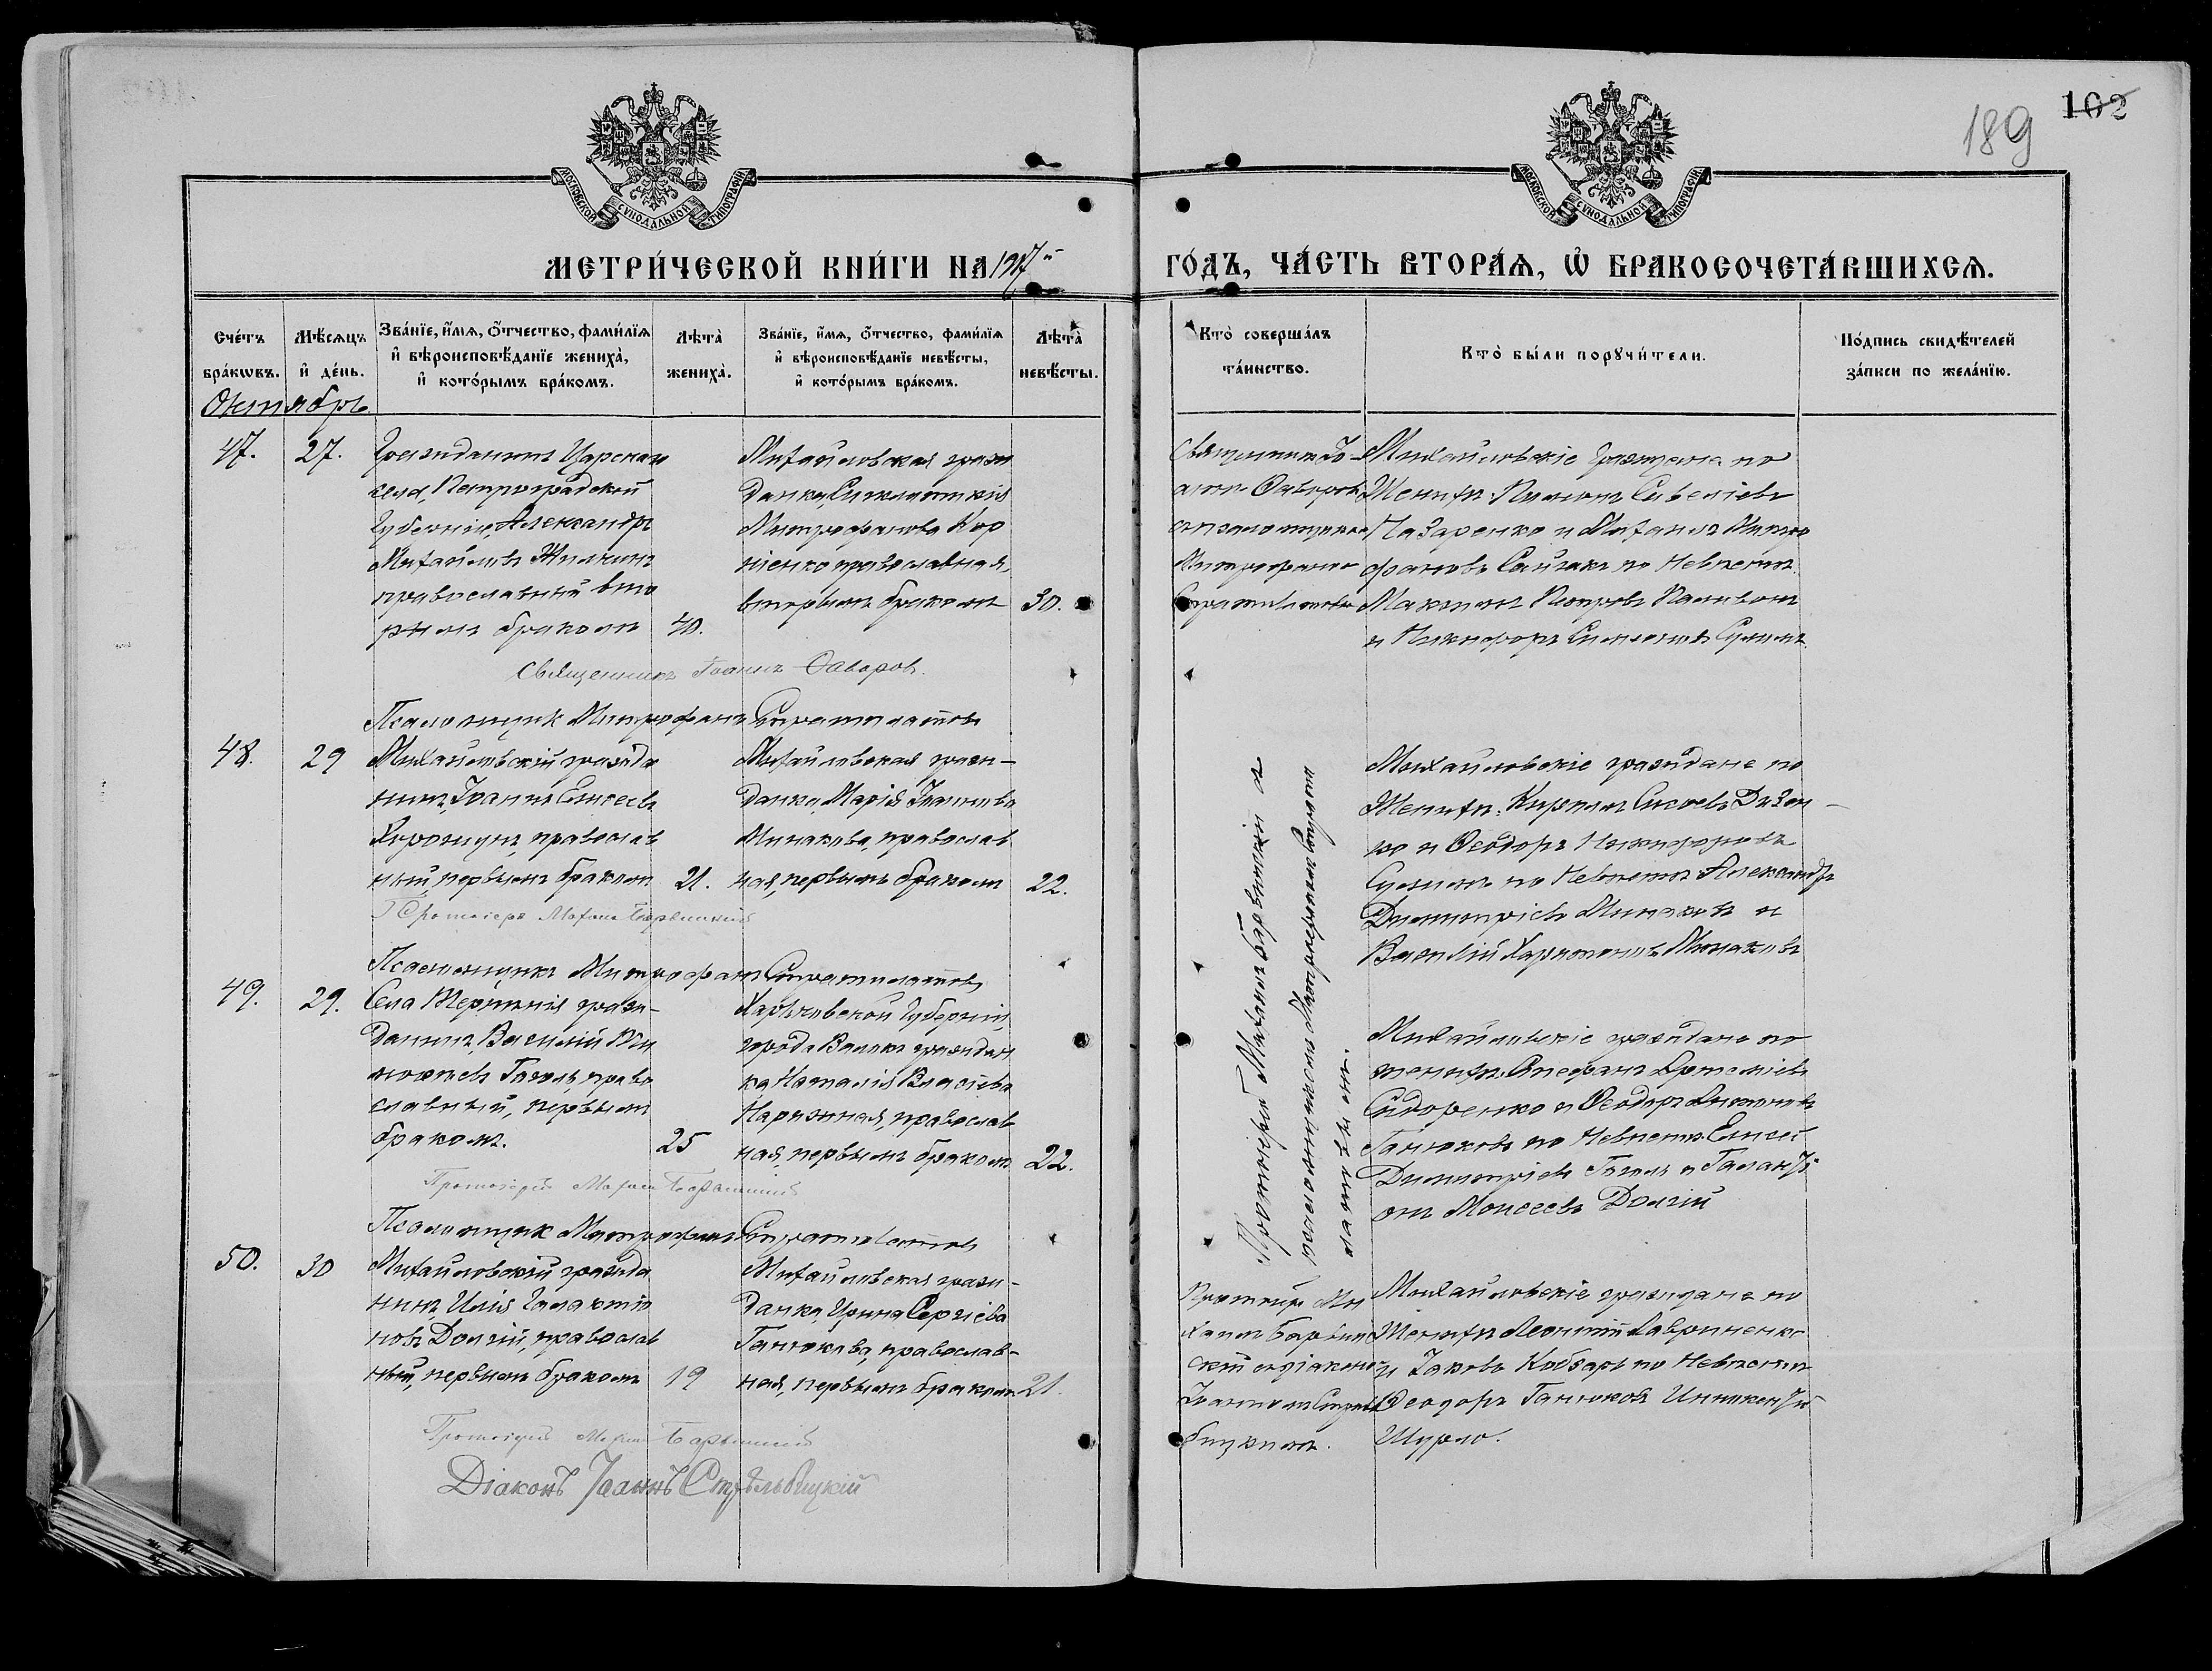 189
102
МОСКОВСКОЙ СѴНОДАЛЬНОЙ ТИПОГРАФІИ
МОСКОВСКОЙ СѴНОДАЛЬНОЙ ТИПОГРАФІИ
МЕТРИ́ЧЕСКОЙ КНИ́ГИ НА 1917й
ГО́ДЪ, ЧА́СТЬ ВТОРА́Ѧ, Ѡ҆ БРАКОСОЧЕТА́ВШИХСѦ.
Сче́тъ бра́кωвъ.
Мѣ́сѧцъ и҆ де́нь.
Зва́нїе, и҆́мѧ, ѻ҆́тчество, фами́лїѧ и҆ вѣроисповѣ́данїе жениха̀, и҆ кото́рымъ бра́комъ.
Лѣта̀ жениха̀.
Зва́нїе, и҆́мѧ, ѻ҆́тчество, фами́лїѧ и҆ вѣроисповѣ́данїе невѣ́сты, и҆ кото́рымъ бра́комъ.
Лѣта̀ невѣ́сты.
Кто̀ соверша́лъ та́инство.
Кто̀ бы́ли порꙋчи́тели.
По́дпись свидѣ́телей за́писи по жела́нїю.
Октябрь
47.
27.
Гражданинъ Царскаго
села, Петроградской
Губерніи, Александръ
Михайловъ Жилкинъ
православный вто
рымъ бракомъ
40.
Михайловская граж
данка,
Митрофанова Кор
ніенко православная,
вторымъ бракомъ
30.
Священникъ Іо
аннъ Ѳаворовъ
съ псаломщикомъ
Митрофаномъ
Стратилатовымъ
Михайловскіе граждане по
Женихѣ: Савеліевъ
Назаренко и Михаилъ Митро
фановъ по Невѣстѣ
Максимъ Петровъ
и Никифоръ
Священникъ Іоаннъ Ѳаворовъ.
Псаломщик Митрофанъ Стратилатовъ
48.
29
Михайловскій гражда
нинъ, Іоаннъ Елисеевъ
православ
ный, первымъ бракомъ
21.
Михайловская граж-
данка, Марія Іоаннова
Минакова, православ
ная, первымъ бракомъ
22.
Протоіерей Михаилъ Барвинскій съ
псаломщикомъ Митрофаномъ Страти
латовымъ.
Михайловскіе граждане по
Женихѣ: Кириллъ Сысоевъ
ко и Ѳеодоръ Никифоровъ
по Невѣстѣ Александръ
Димитріевъ Минаковъ и
Василій Харитоновъ Минаковъ
Протоіерей Михаилъ Барвинскій
Псаломщикъ Митрофанъ Стратилатовъ
49.
29.
Села Терпенія граж-
данинъ, Василій
Гоголь, право
славный, первымъ
бракомъ.
25
Харьковской Губерніи,
города Валокъ граждан
ка, Наталія Власіева
Нарижная, православ
ная, первымъ бракомъ
22.
Михайловскіе граждане по
женихѣ: Стефанъ Артеміевъ
Сидоренко и Ѳеодоръ
Ганюковъ по Невѣстѣ: Елисей
Димитріевъ Гоголь и Галакті
онъ Моисеевъ Долгій
Протоіерей Михаилъ Барвинскій
Псаломщик Митрофанъ Стратилатовъ
50.
30
Михайловскій гражда
нинъ, Илія Галактіо
новъ Долгій, православ
ный, первымъ бракомъ
19
Михайловская граж-
данка, Ирина Сергіева
Ганюкова, православ-
ная, первымъ бракомъ
21.
Протоіер. Ми
хаилъ Барвин
скій съ діакономъ
Іоанномъ Стрѣль
бицкимъ.
Михайловскіе граждане по
Женихѣ Леонтій Лавриненко
и Іаковъ Кобзарь по Невѣстѣ
Ѳеодоръ Ганюковъ Иннокентій
Шурло.
Протоіерей Михаилъ Барвинскій
Діаконъ Іоаннъ Стрѣльбицкій